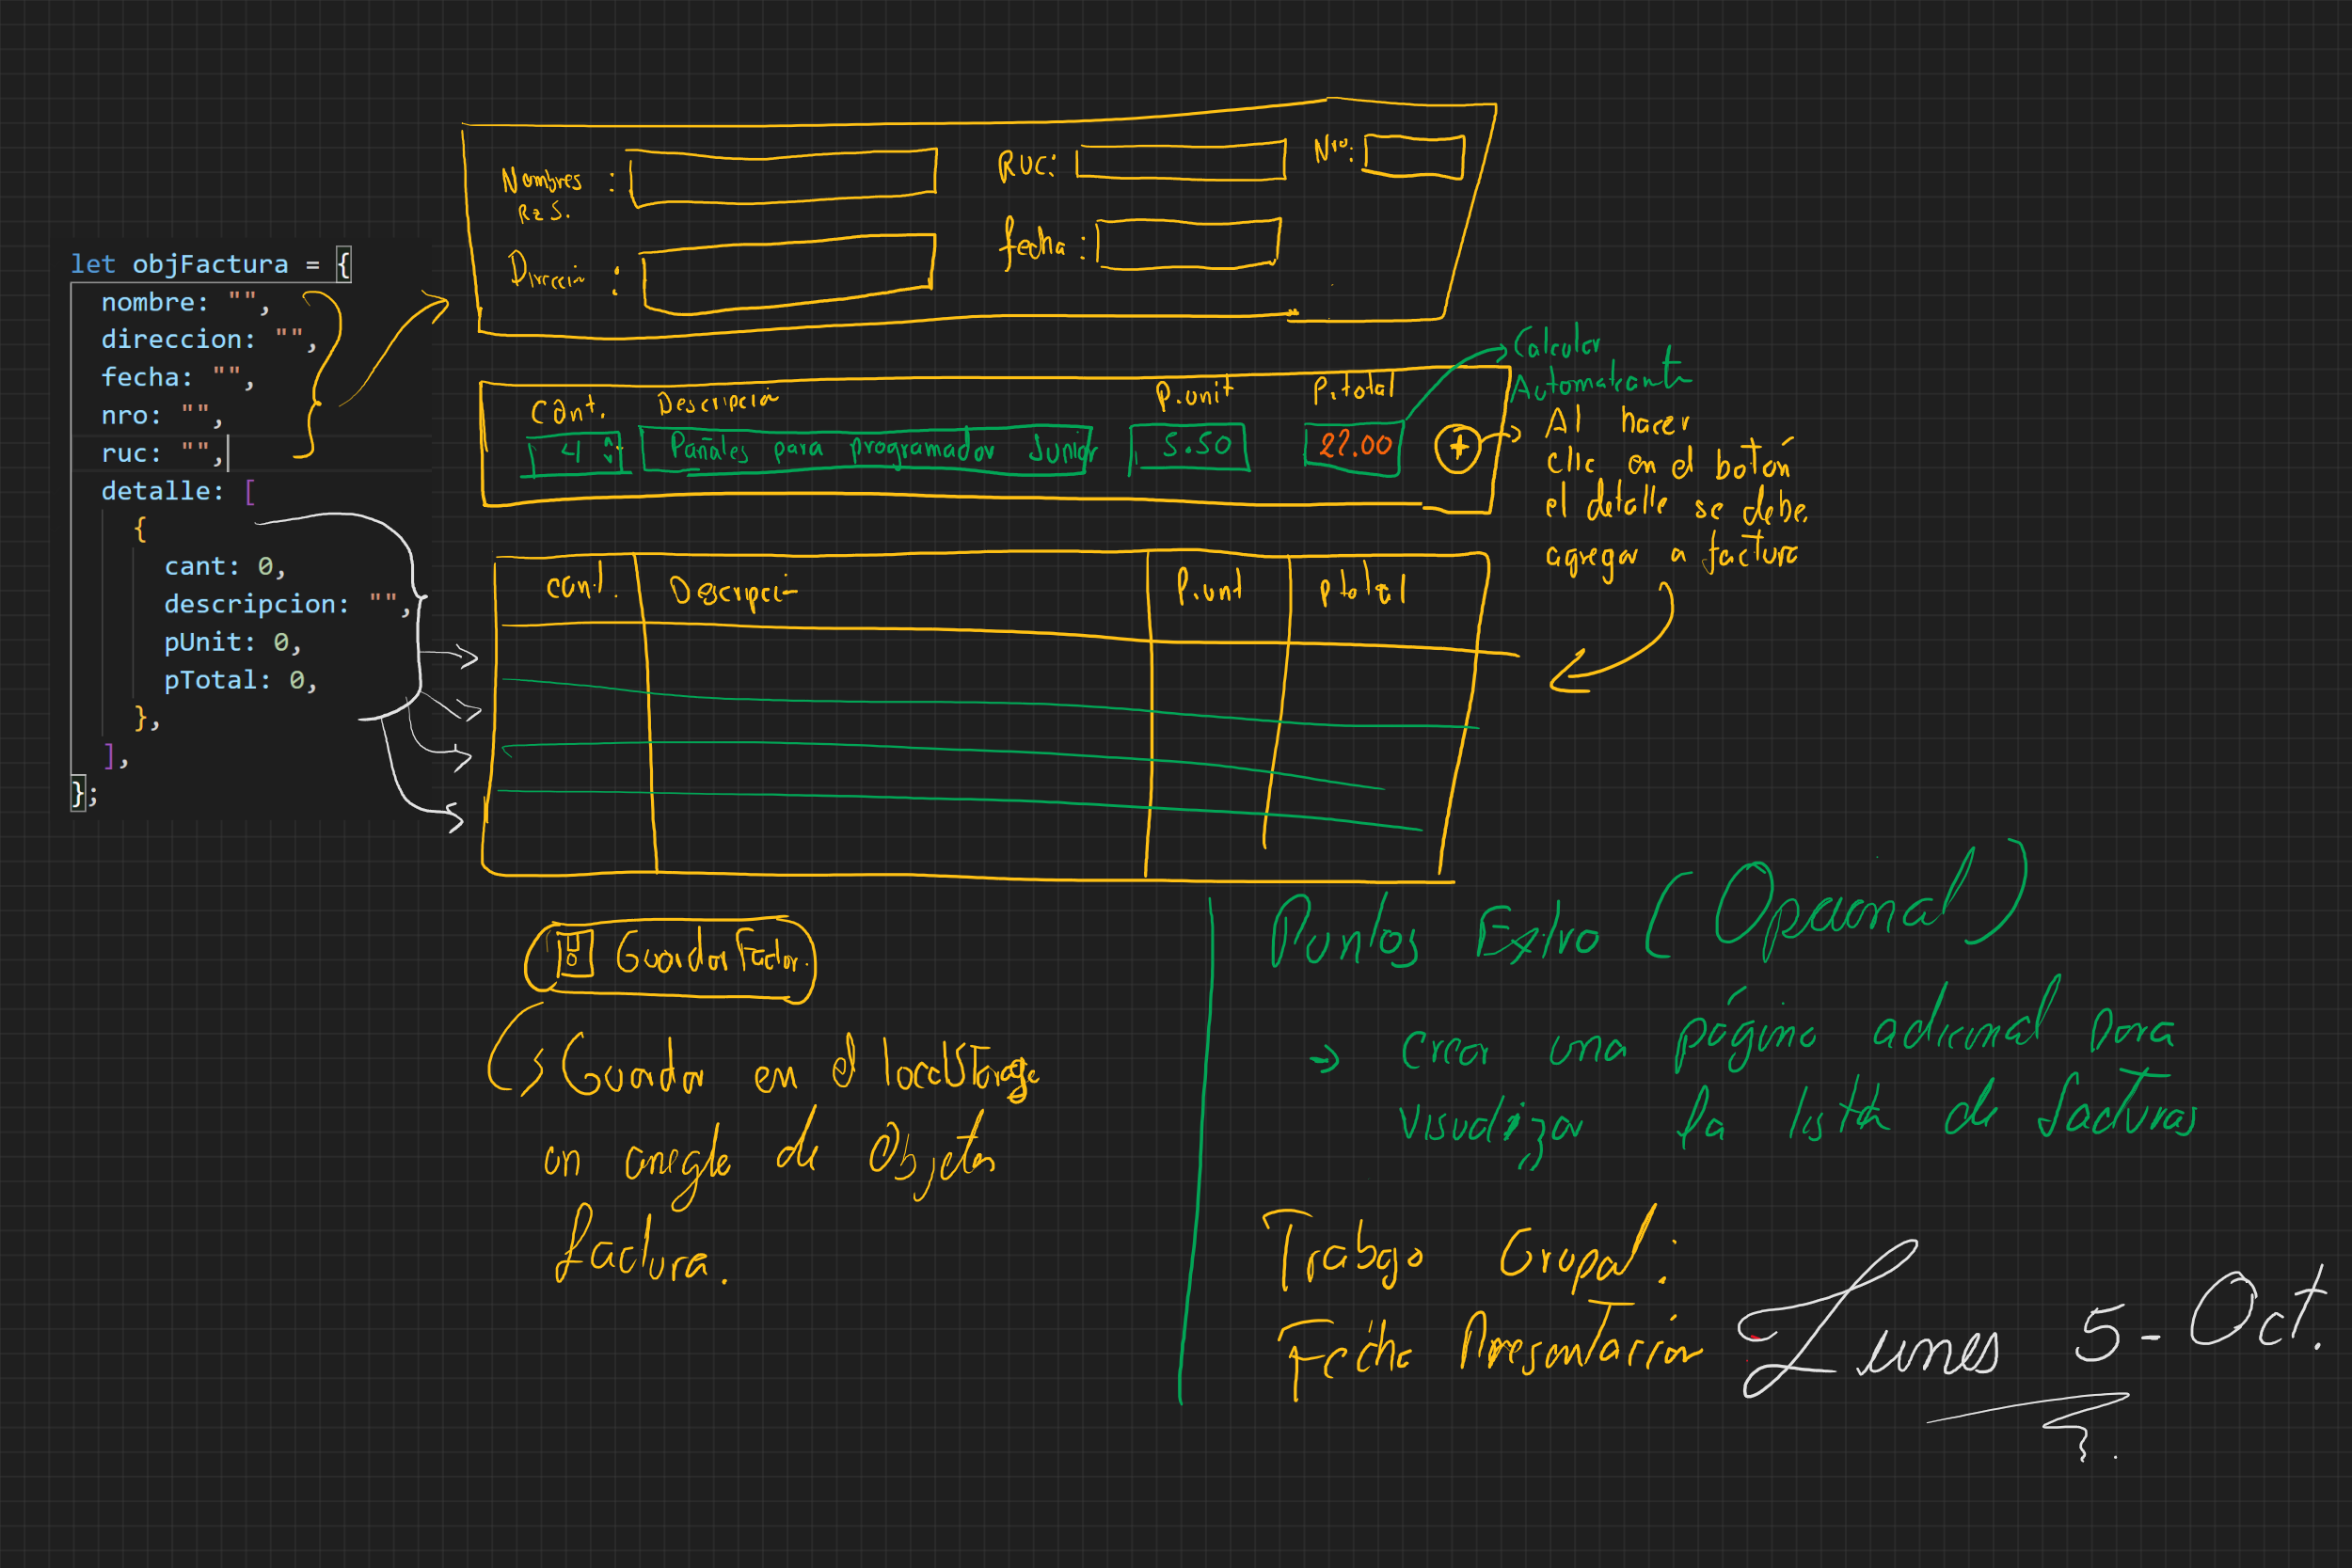 let objFactura = {
nombre: "",
direccion: "",
fecha: "",
nro: "",
ruc: "",
detalle: [
{
cant: 0,
descripcion: "",
pUnit: 0,
pTotal: 0,
},
],
};
Nombres :
Rz S.
RUC:
Nro:
Direccion :
fecha :
Cant. Descripcion P.unit P.total
4 Pañales para programador Junior 5.50 22.00 +
Calcular
Al hacer
clic en el botón
el detalle se debe
agregar a factura
cant. Descripci- P.unt ptotal
Guardar Factur.
Guardar en el localStorage
un arregle de Objetos
factura.
Puntos Extra (Opcional)
→ crear una página adicional para
visualizar la lista de facturas
Trabajo Grupal:
Fecha Presentación Lunes 5-Oct.